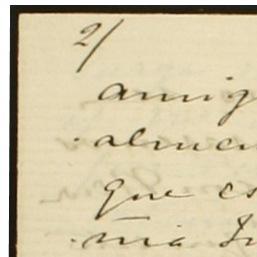 2/
amig
almen
que es
mia